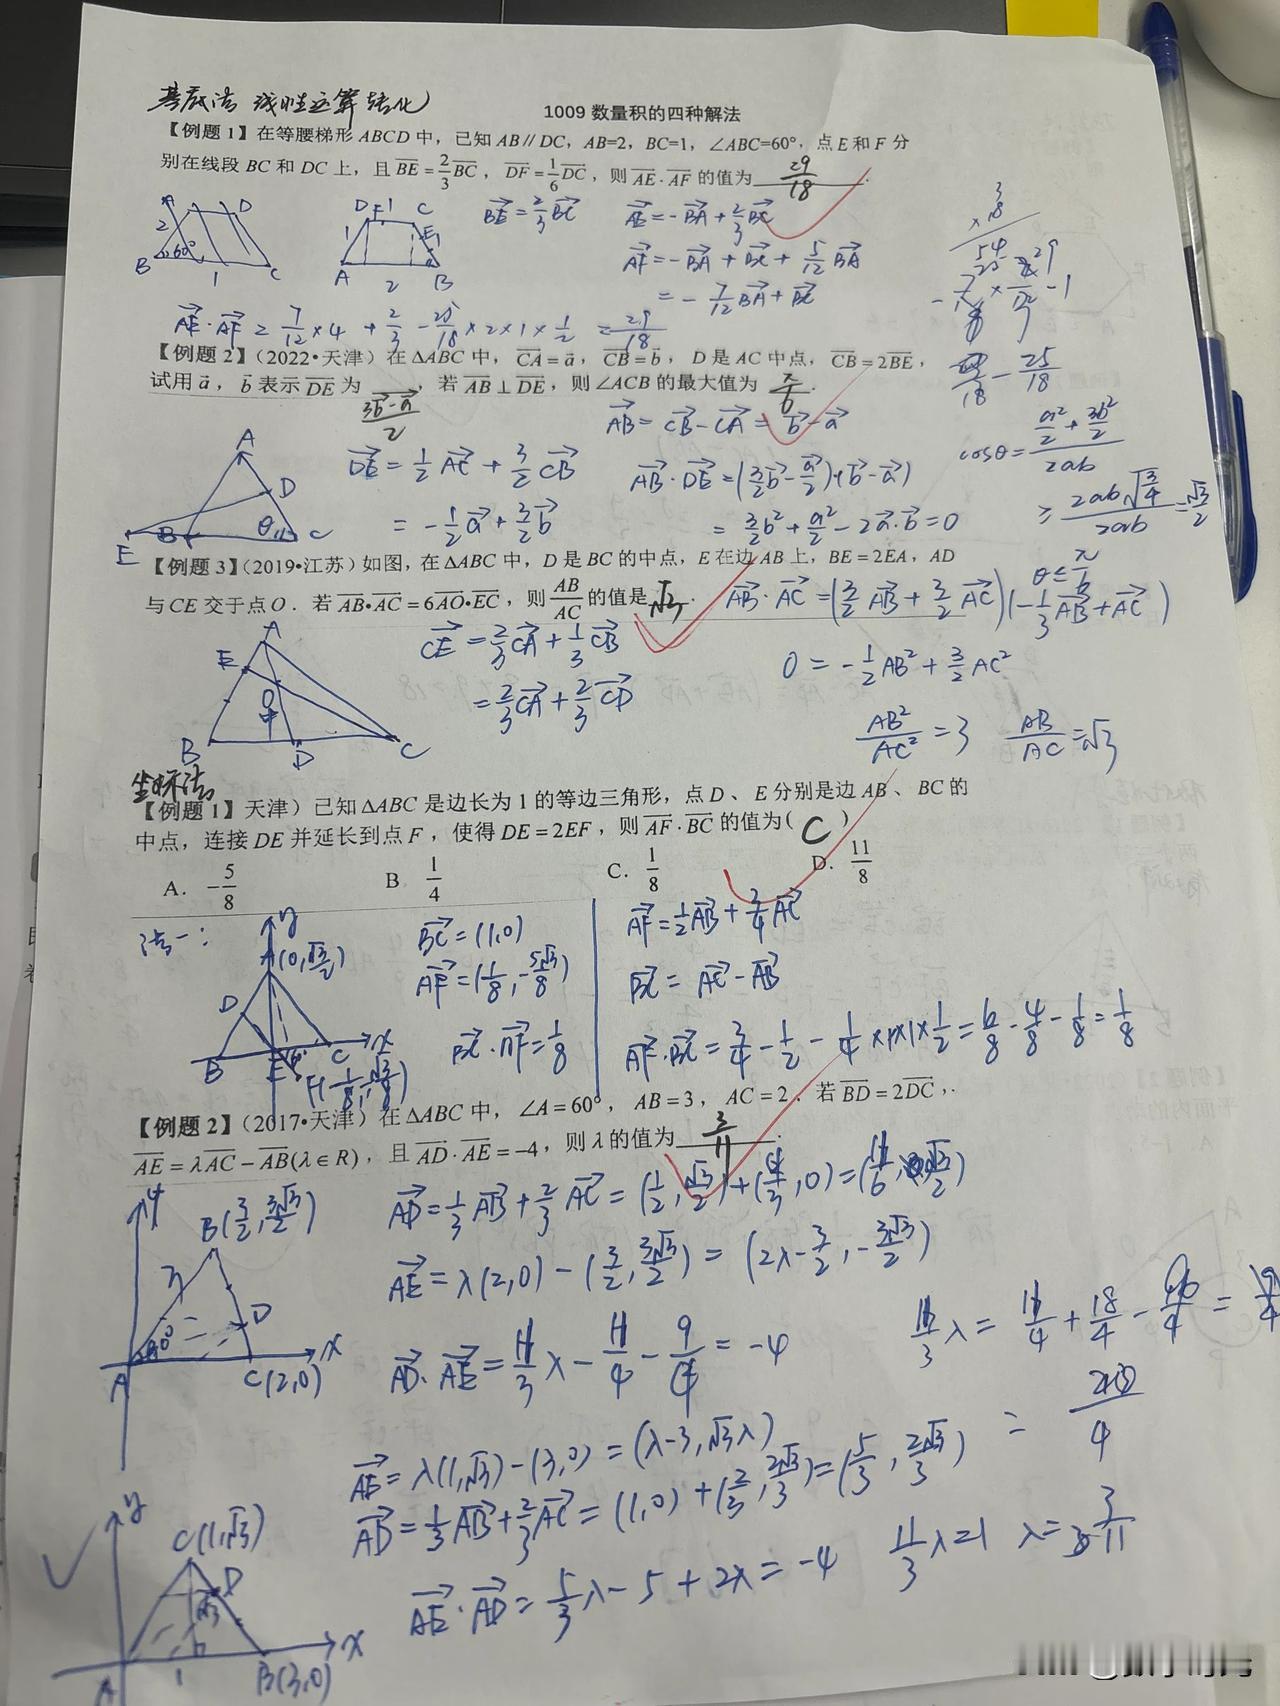 基底法 线性运算 转化
1009 数量积的四种解法
【例题1】在等腰梯形 ABCD 中，已知 AB∥DC，AB=2，BC=1，∠ABC=60°，点 E 和 F 分
别在线段 BC 和 DC 上，且 BE=2/3 BC，DF=1/6 DC，则 AE·AF 的值为 29/18 .
BE=2/3 BC
AE=-BA+2/3 BC
AF=-BA+BC+5/12 BA
=-7/12 BA+BC
AE·AF = 7/12×4+2/3-25/18×2×1×1/2=29/18
【例题2】（2022•天津）在 ΔABC 中，CA=a，CB=b，D 是 AC 中点，CB=2BE，
试用 a，b 表示 DE 为 (3b-a)/2 ，若 AB⊥DE，则 ∠ACB 的最大值为 π/6 .
AB=CB-CA=b-a
DE=1/2 AC+3/2 CB
=-1/2 a+3/2 b
AB·DE=(3/2 b-a/2)·(b-a)
=3/2 b²+a²/2-2a·b=0
cosθ=(a²/2+3b²/2)/2ab
≥ 2ab√(3/4)/2ab=√3/2
θ≤π/6
【例题3】（2019•江苏）如图，在 ΔABC 中，D 是 BC 的中点，E 在边 AB 上，BE=2EA，AD
与 CE 交于点 O．若 AB•AC=6AO•EC，则 AB/AC 的值是 √3 .
AB·AC=(3/2 AB+3/2 AC)(-1/3 AB+AC)
CE=2/3 CA+1/3 CB
=2/3 CA+2/3 CD
0=-1/2 AB²+3/2 AC²
AB²/AC²=3 AB/AC=√3
坐标法
【例题1】天津）已知 ΔABC 是边长为 1 的等边三角形，点 D、E 分别是边 AB、BC 的
中点，连接 DE 并延长到点 F，使得 DE=2EF，则 AF·BC 的值为( C )
A. -5/8 B. 1/4 C. 1/8 D. 11/8
法一：
A(0,√3/2)
BC=(1,0)
AF=(1/8,-5√3/8)
BC·AF=1/8
AF=1/2 AB+3/4 AC
BC=AC-AB
AF·BC=3/4-1/2-1/4×1×1×1/2=6/8-4/8-1/8=1/8
【例题2】（2017•天津）在 ΔABC 中，∠A=60°，AB=3，AC=2．若 BD=2DC，.
AE=λAC-AB(λ∈R)，且 AD·AE=-4，则 λ 的值为 3/11 .
B(3/2,3√3/2)
C(2,0)
AD=1/3 AB+2/3 AC=(1/2,√3/2)+(4/3,0)=(11/6,√3/2)
AE=λ(2,0)-(3/2,3√3/2)=(2λ-3/2,-3√3/2)
AD·AE=11/3 λ-11/4-9/4=-4
AE=λ(1,√3)-(3,0)=(λ-3,√3λ)
AD=1/3 AB+2/3 AC=(1,0)+(2/3,2√3/3)=(5/3,2√3/3)
AE·AD=5/3 λ-5+2λ=-4 11/3 λ=1 λ=3/11
C(1,√3)
B(3,0)